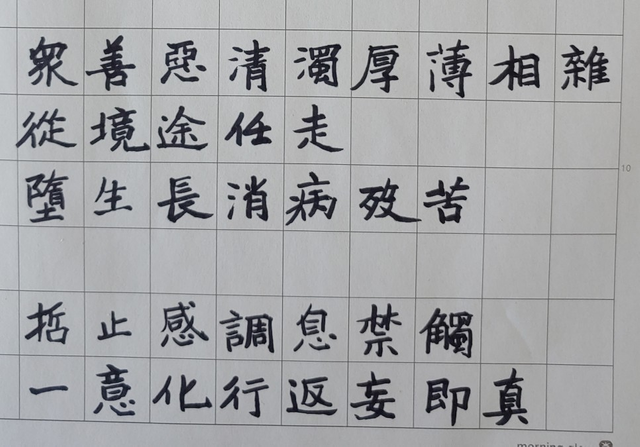 衆善惡清濁厚薄相雜
從境途任走
10
墮生長消病歿苦
哲止感調息禁觸
一意化行返妄即真
morning